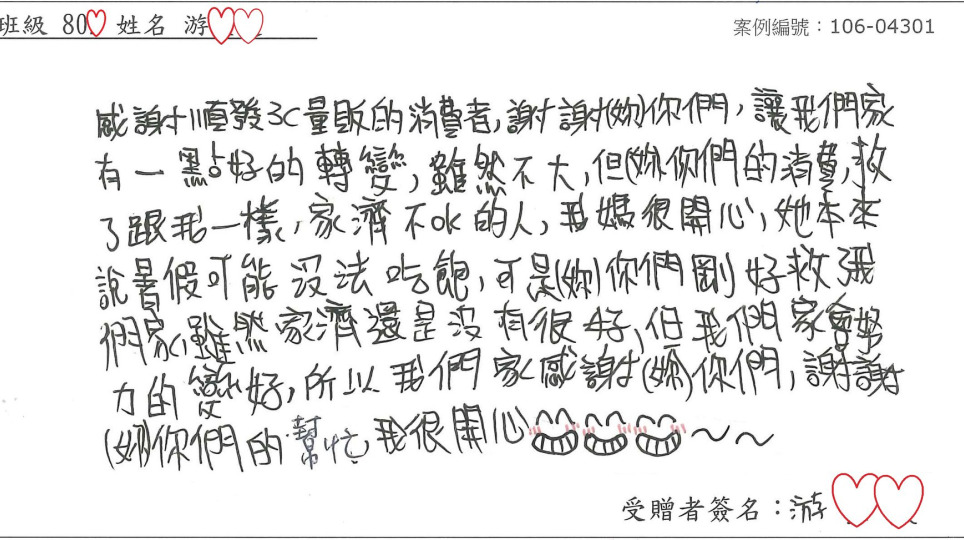 班級 80 姓名 游
案例編號：106-04301
感謝順發3C量販的消費者，謝謝(妳)你們，讓我們家
有一點好的轉變，雖然不大，但(妳)你們的消費，救
了跟我一樣，家濟不ok的人，我媽很開心，她本來
說暑假可能沒法吃飽，可是(妳)你們剛好救了我
們家，雖然家濟還是沒有很好，但我們家會努
力的變好，所以我們家感謝(妳)你們，謝謝
(妳)你們的幫忙，我很開心～～
受贈者簽名：游